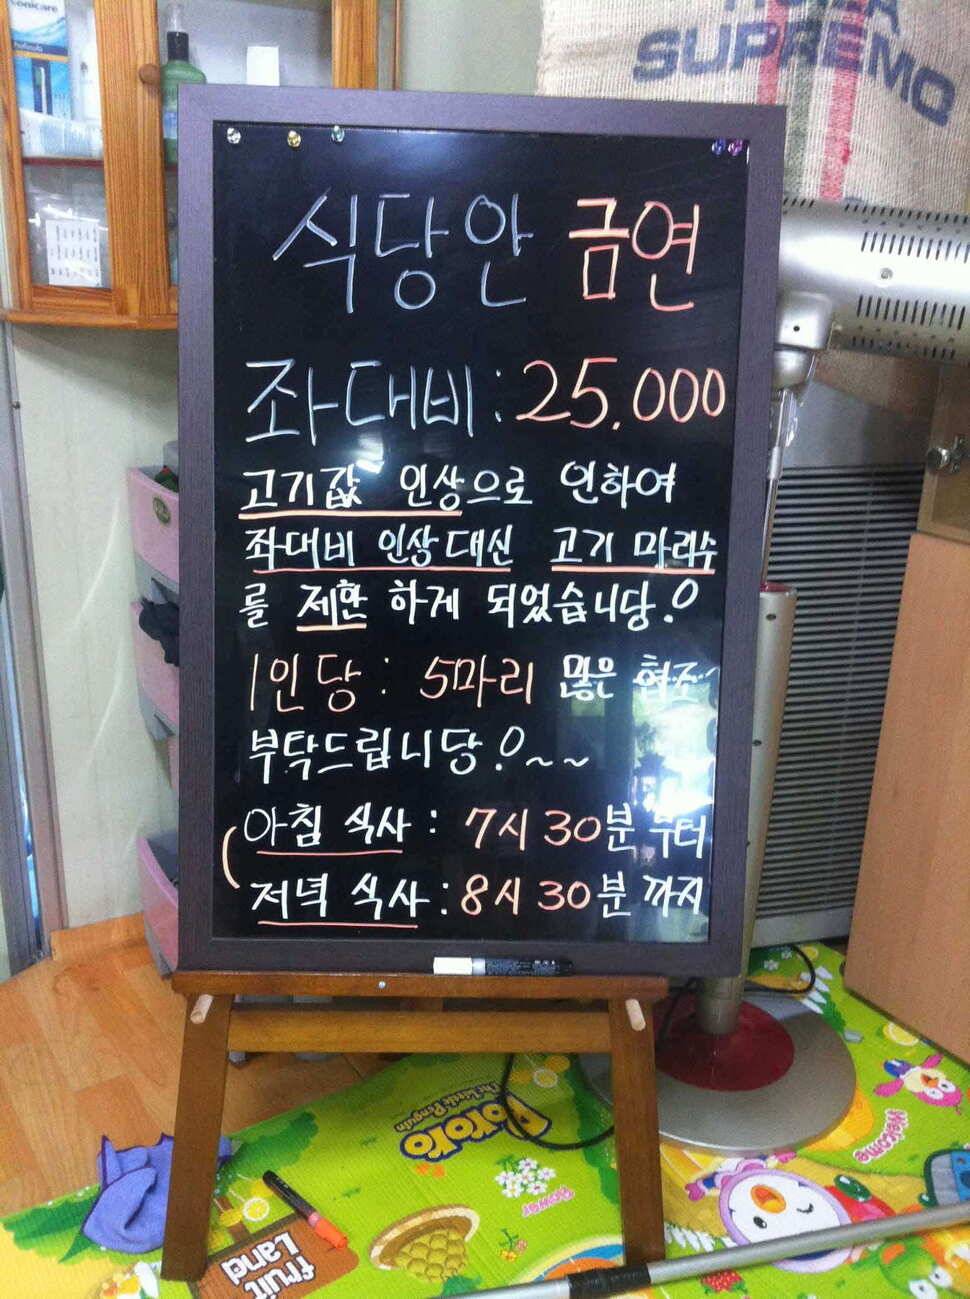 SUPREMO
sonicare
식당안 금연
좌대비 : 25.000
고기값 인상으로 인하여
좌대비 인상대신 고기 마리수
를 제한 하게 되었습니당!
1인당 : 5마리 많은 협조
부탁드립니당!~~
아침 식사 : 7시 30분 부터
저녁 식사 : 8시 30분 까지
PORORO
The Little Penguin
Welcome
flower
fruit
Land